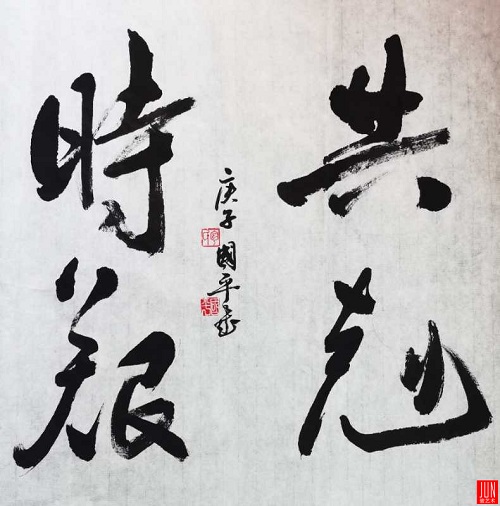 共尅
時艱
庚子國平書
JUN